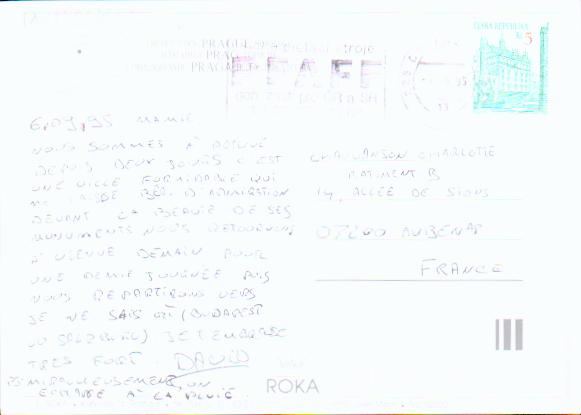 6.09.95 MAMIE
NOUS SOMMES À
DEPUIS DEUX JOURS C'EST
UNE VILLE FORMIDABLE QUI
ME LAISSE D'ADMIRATION
DEVANT LA BEAUTÉ DE SES
MONUMENTS NOUS RETOURNONS
À VIENNE DEMAIN POUR
UNE DEMIE JOURNÉE PUIS
NOUS REPARTIRONS VERS
JE NE SAIS OÙ (BUDAPEST
OU SALZBURG). JE T'EMBRASSE
TRES FORT. DAVID
PS: MIRACULEUSEMENT, ON
ECHAPPE À LA PLUIE
ČESKÁ REPUBLIKA
Kč 5
PRAGUE
PRAG
PRAGA
stroje
PFAFF
CHARLOTTE
BATIMENT B
14, ALLÉE DE SIONS
07200 AUBENAS
FRANCE
ROKA